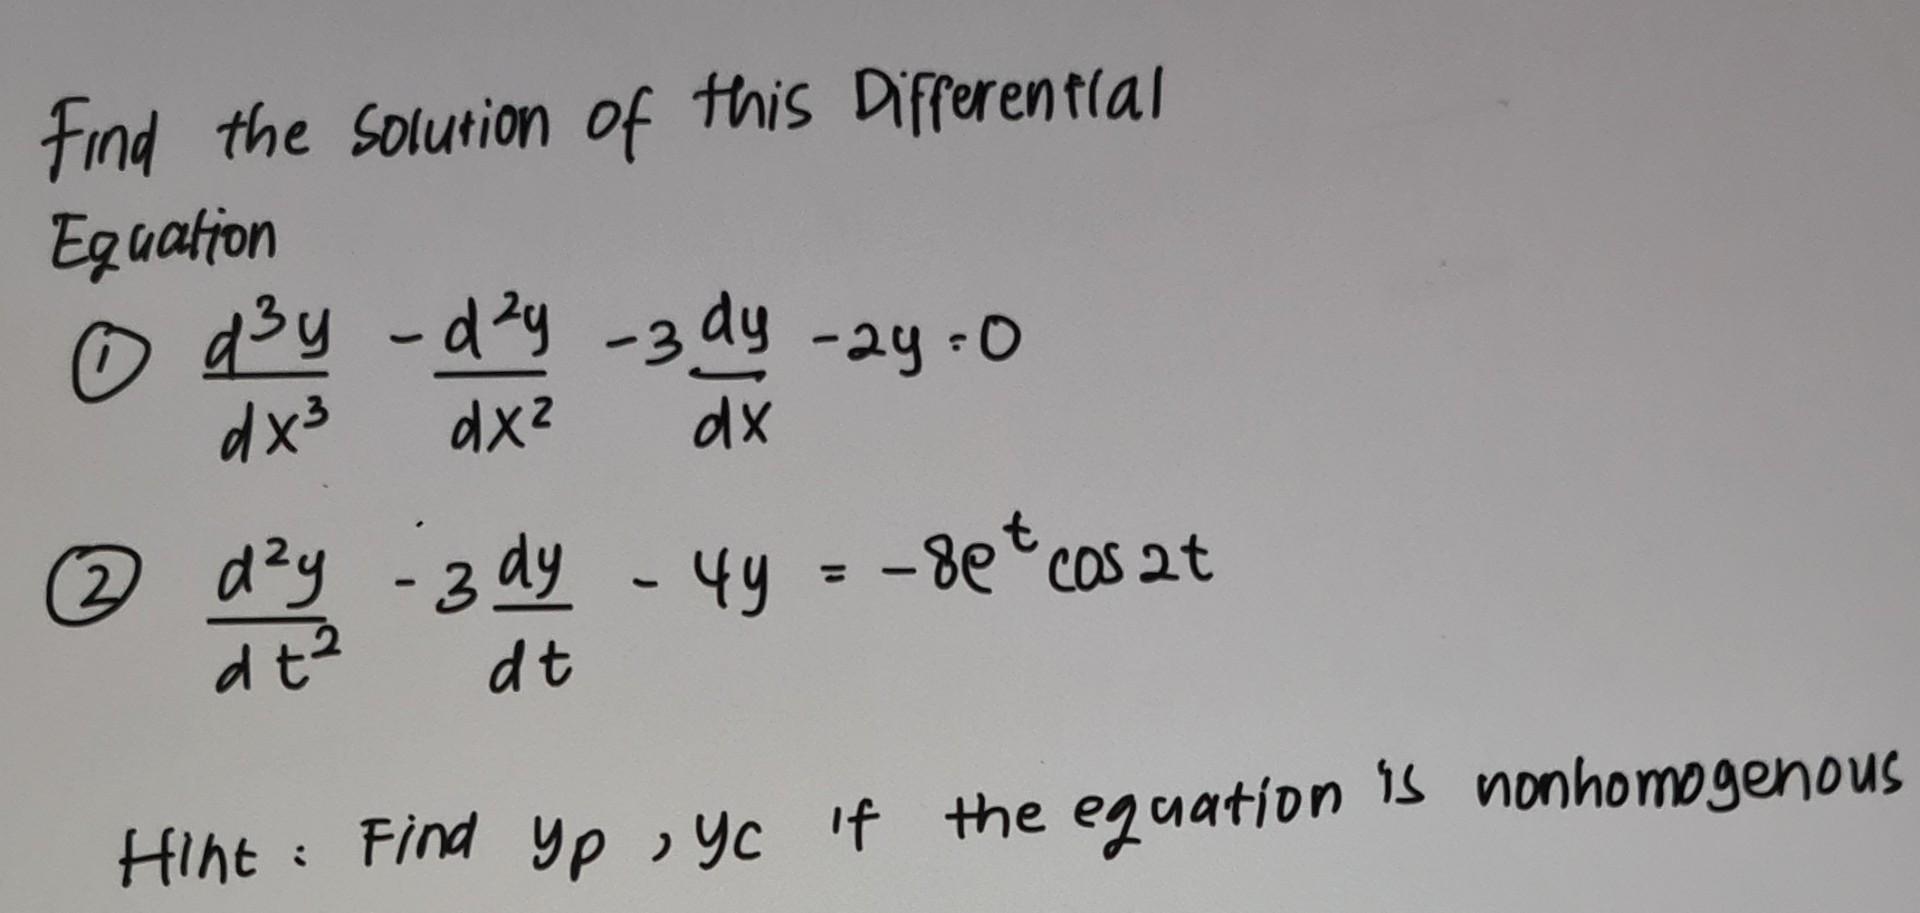 Find the solution of this Differential
Equation
① d³y/dx³ - d²y/dx² - 3 dy/dx - 2y = 0
② d²y/dt² - 3 dy/dt - 4y = -8e^t cos 2t
Hint : Find yp , yc if the equation is nonhomogenous